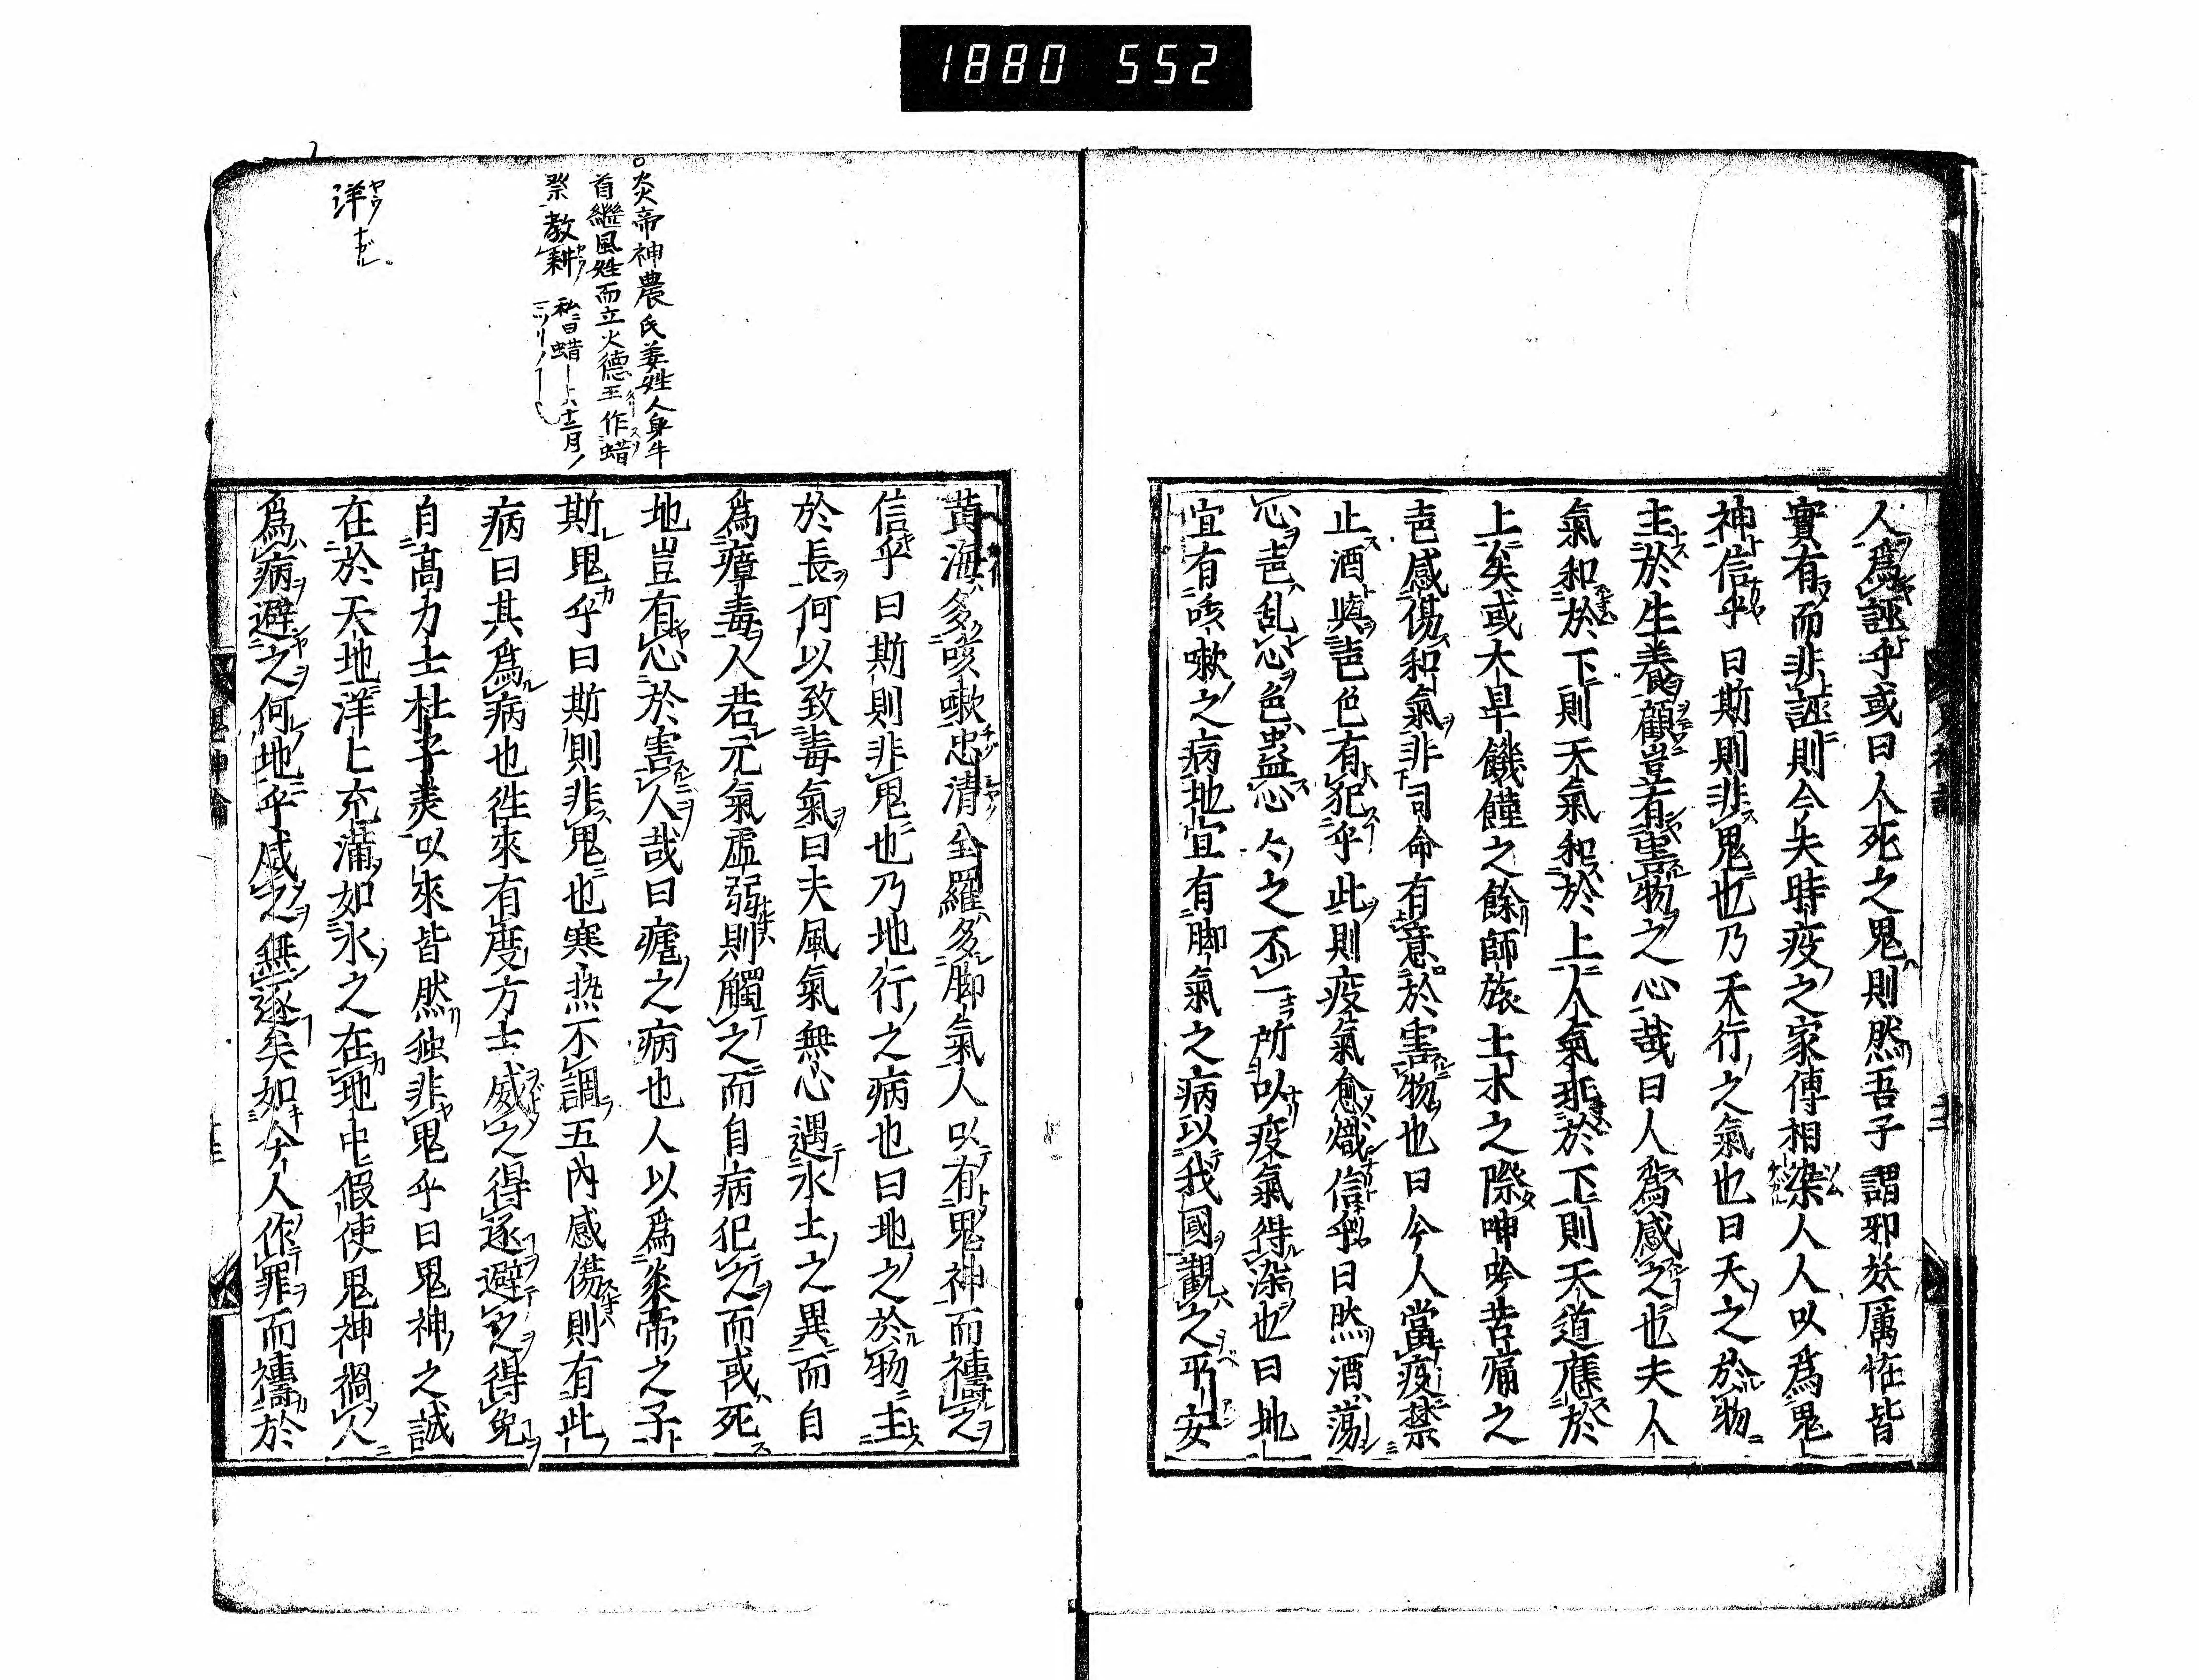 1880 552
人爲誣乎或曰人死之鬼則然吾子謂邪妖厲恠皆
實有而非誣則今夫時疫之家傳相染人人以爲鬼
神信乎曰斯則非鬼也乃天行之氣也曰天之於物
主於生養顧豈有害物之心哉曰人爲感之也夫人
氣和於下則天氣和於上人氣乖於下則天道應於
上矣或大旱饑饉之餘師旅土木之際呻吟苦痛之
声感傷和氣非司命有意於害物也曰今人當疫禁
止酒與声色有犯乎此則疫氣愈熾信乎曰然酒蕩
心声乱心色蠱心心之不一所以疫氣得染也曰地
宜有咳嗽之病地宜有脚氣之病以我國觀之平安
黃海多咳嗽忠清全羅多脚氣人以有鬼神而禱之
信乎曰斯則非鬼也乃地行之病也曰地之於物主
於長何以致毒氣曰夫風氣無心遇水土之異而自
爲瘴毒人若元氣虛弱則觸之而自病犯之而或死
地豈有心於害人哉曰瘧之病也人以爲炎帝之子
斯鬼乎曰斯則非鬼也寒熱不調五內感傷則有此
病曰其爲病也徃來有度方士威之得逐避之得免
自高力士杜子美以來皆然独非鬼乎曰鬼神之誠
在於天地洋匕充滿如水之在地中假使鬼神禍人
爲病避之何地乎威之無逐矣如今人作罪而禱於
炎帝神農氏姜姓人身牛
首繼風姓而立火德王作蜡
祭教耕
私曰蜡ー十二月ノ
洋
ヤウ
鬼神論